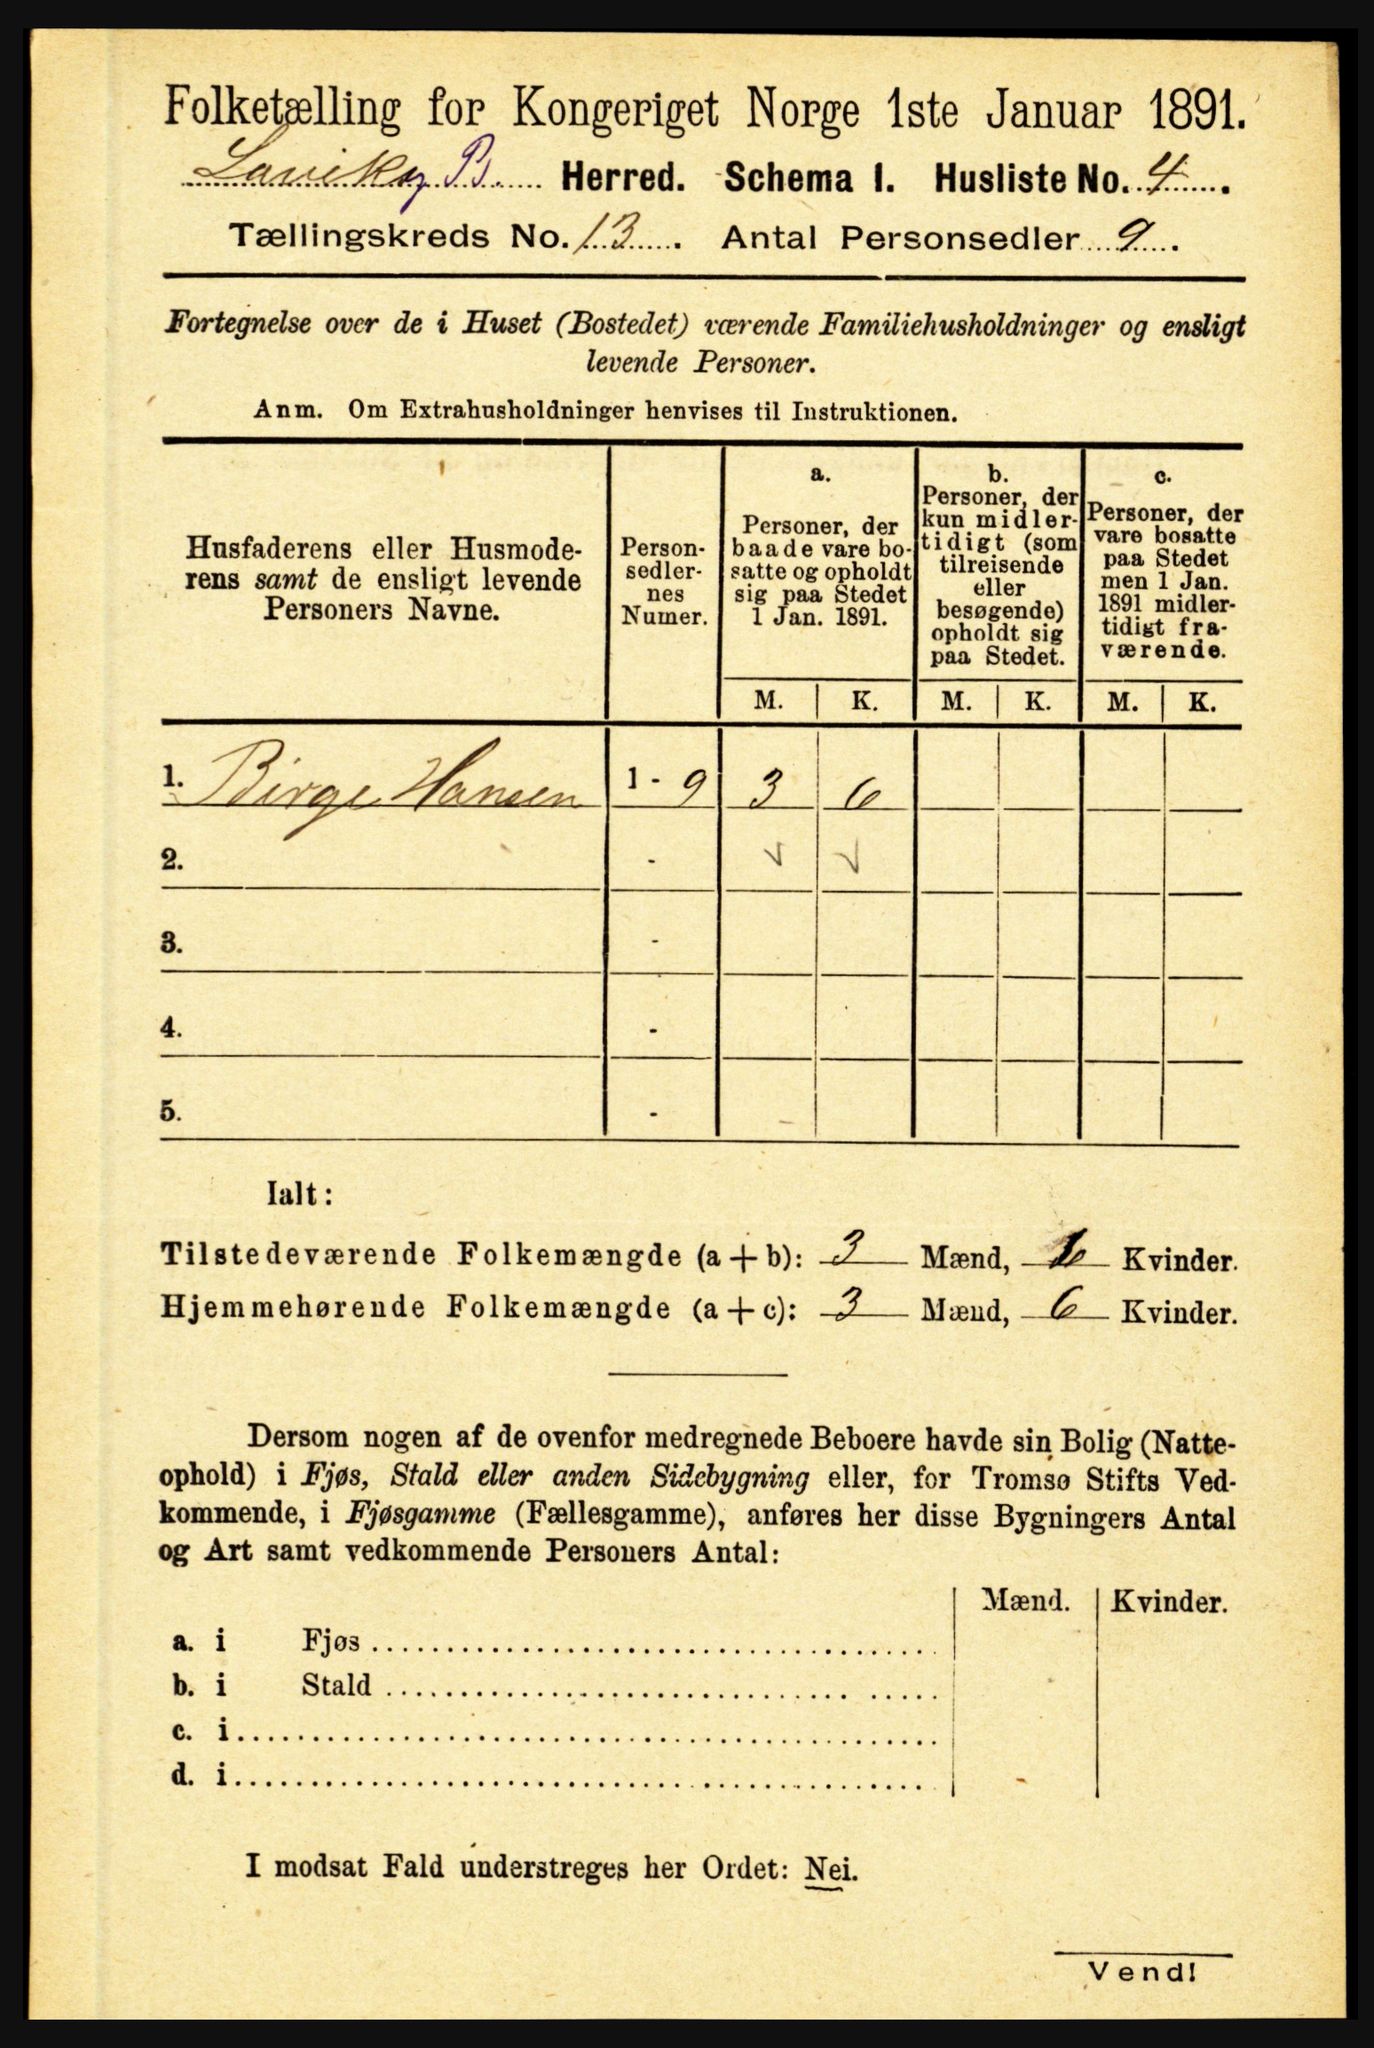 Folketælling for Kongeriget Norge 1ste Januar 1891.
Lavik og B. Herred. Schema I. Husliste No. 4.
Tællingskreds No. 13. Antal Personsedler 9.
Fortegnelse over de i Huset (Bostedet) værende Familiehusholdninger og ensligt
levende Personer.
Anm. Om Extrahusholdninger henvises til Instruktionen.
Husfaderens eller Husmode-
rens samt de ensligt levende
Personers Navne.
Person-
sedler-
nes
Numer.
a.
Personer, der
baade vare bo-
satte og opholdt
sig paa Stedet
1 Jan. 1891.
b.
Personer, der
kun midler-
tidigt (som
tilreisende
eller
besøgende)
opholdt sig
paa Stedet.
c.
Personer, der
vare bosatte
paa Stedet
men 1 Jan.
1891 midler-
tidigt fra-
værende.
M. K. M. K. M. K.
1. Birge Hansen 1 - 9 3 6
2. - ✓ ✓
3. -
4. -
5. -
Ialt:
Tilstedeværende Folkemængde (a + b): 3 Mænd, 6 Kvinder.
Hjemmehørende Folkemængde (a + c): 3 Mænd, 6 Kvinder.
Dersom nogen af de ovenfor medregnede Beboere havde sin Bolig (Natte-
ophold) i Fjøs, Stald eller anden Sidebygning eller, for Tromsø Stifts Ved-
kommende, i Fjøsgamme (Fællesgamme), anføres her disse Bygningers Antal
og Art samt vedkommende Personers Antal:
Mænd. Kvinder.
a. i Fjøs
b. i Stald
c. i
d. i
I modsat Fald understreges her Ordet: Nei.
Vend!